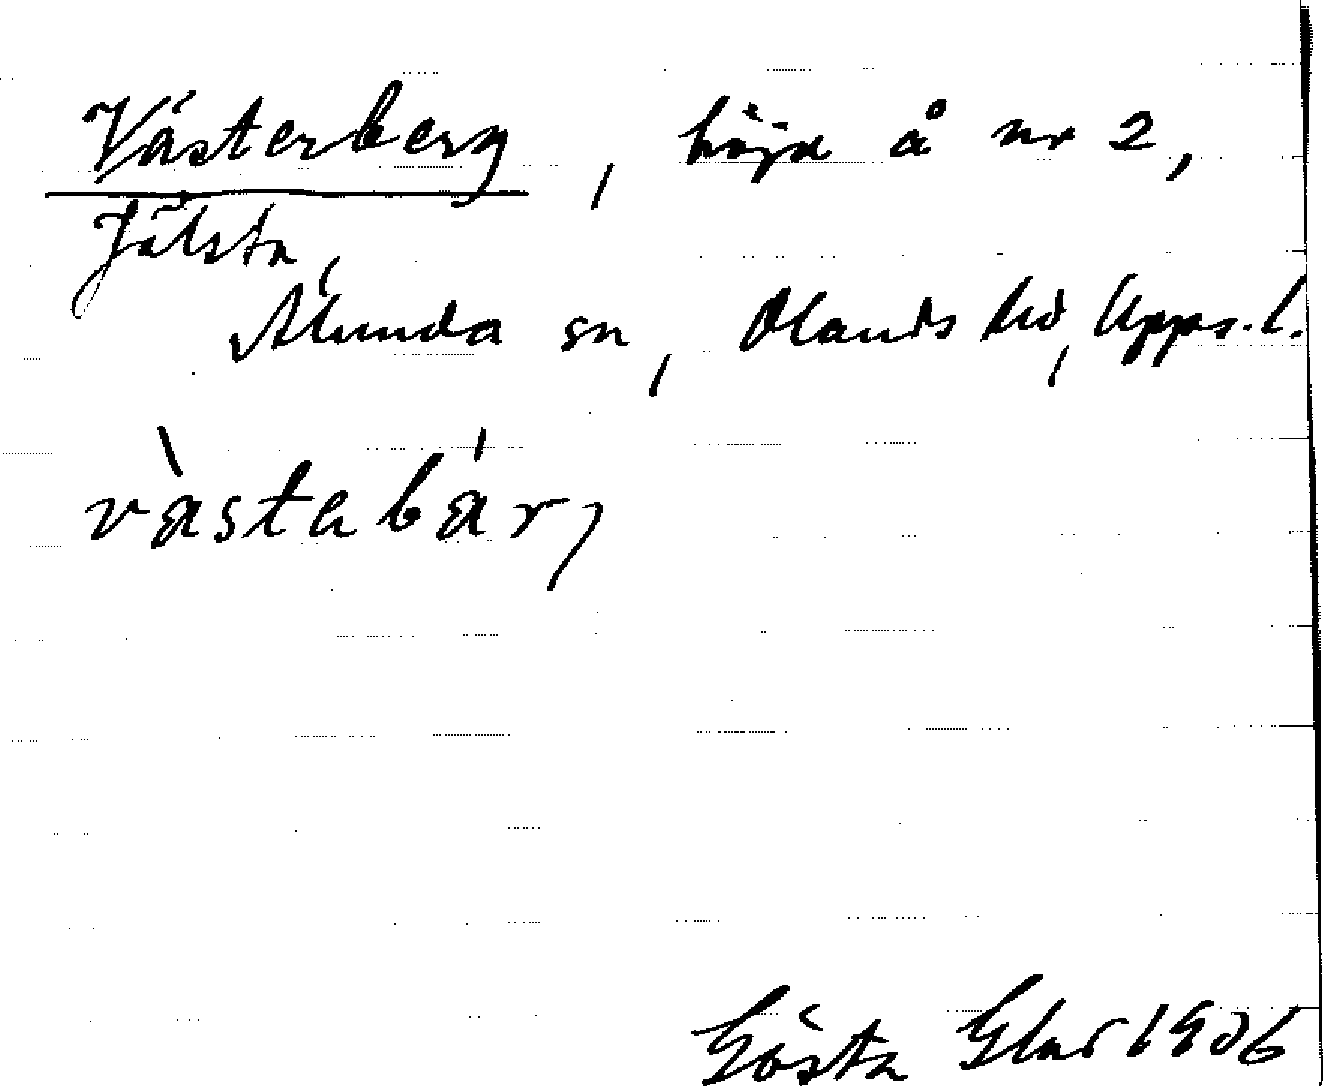 Västerberg, höjd å nr 2,
Jälsta,
Alunda sn, Olands hd, Upps. l.
våstabár,
Gösta 1906